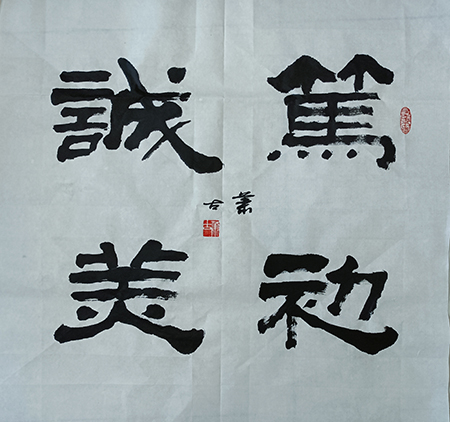 篤初
誠美
古